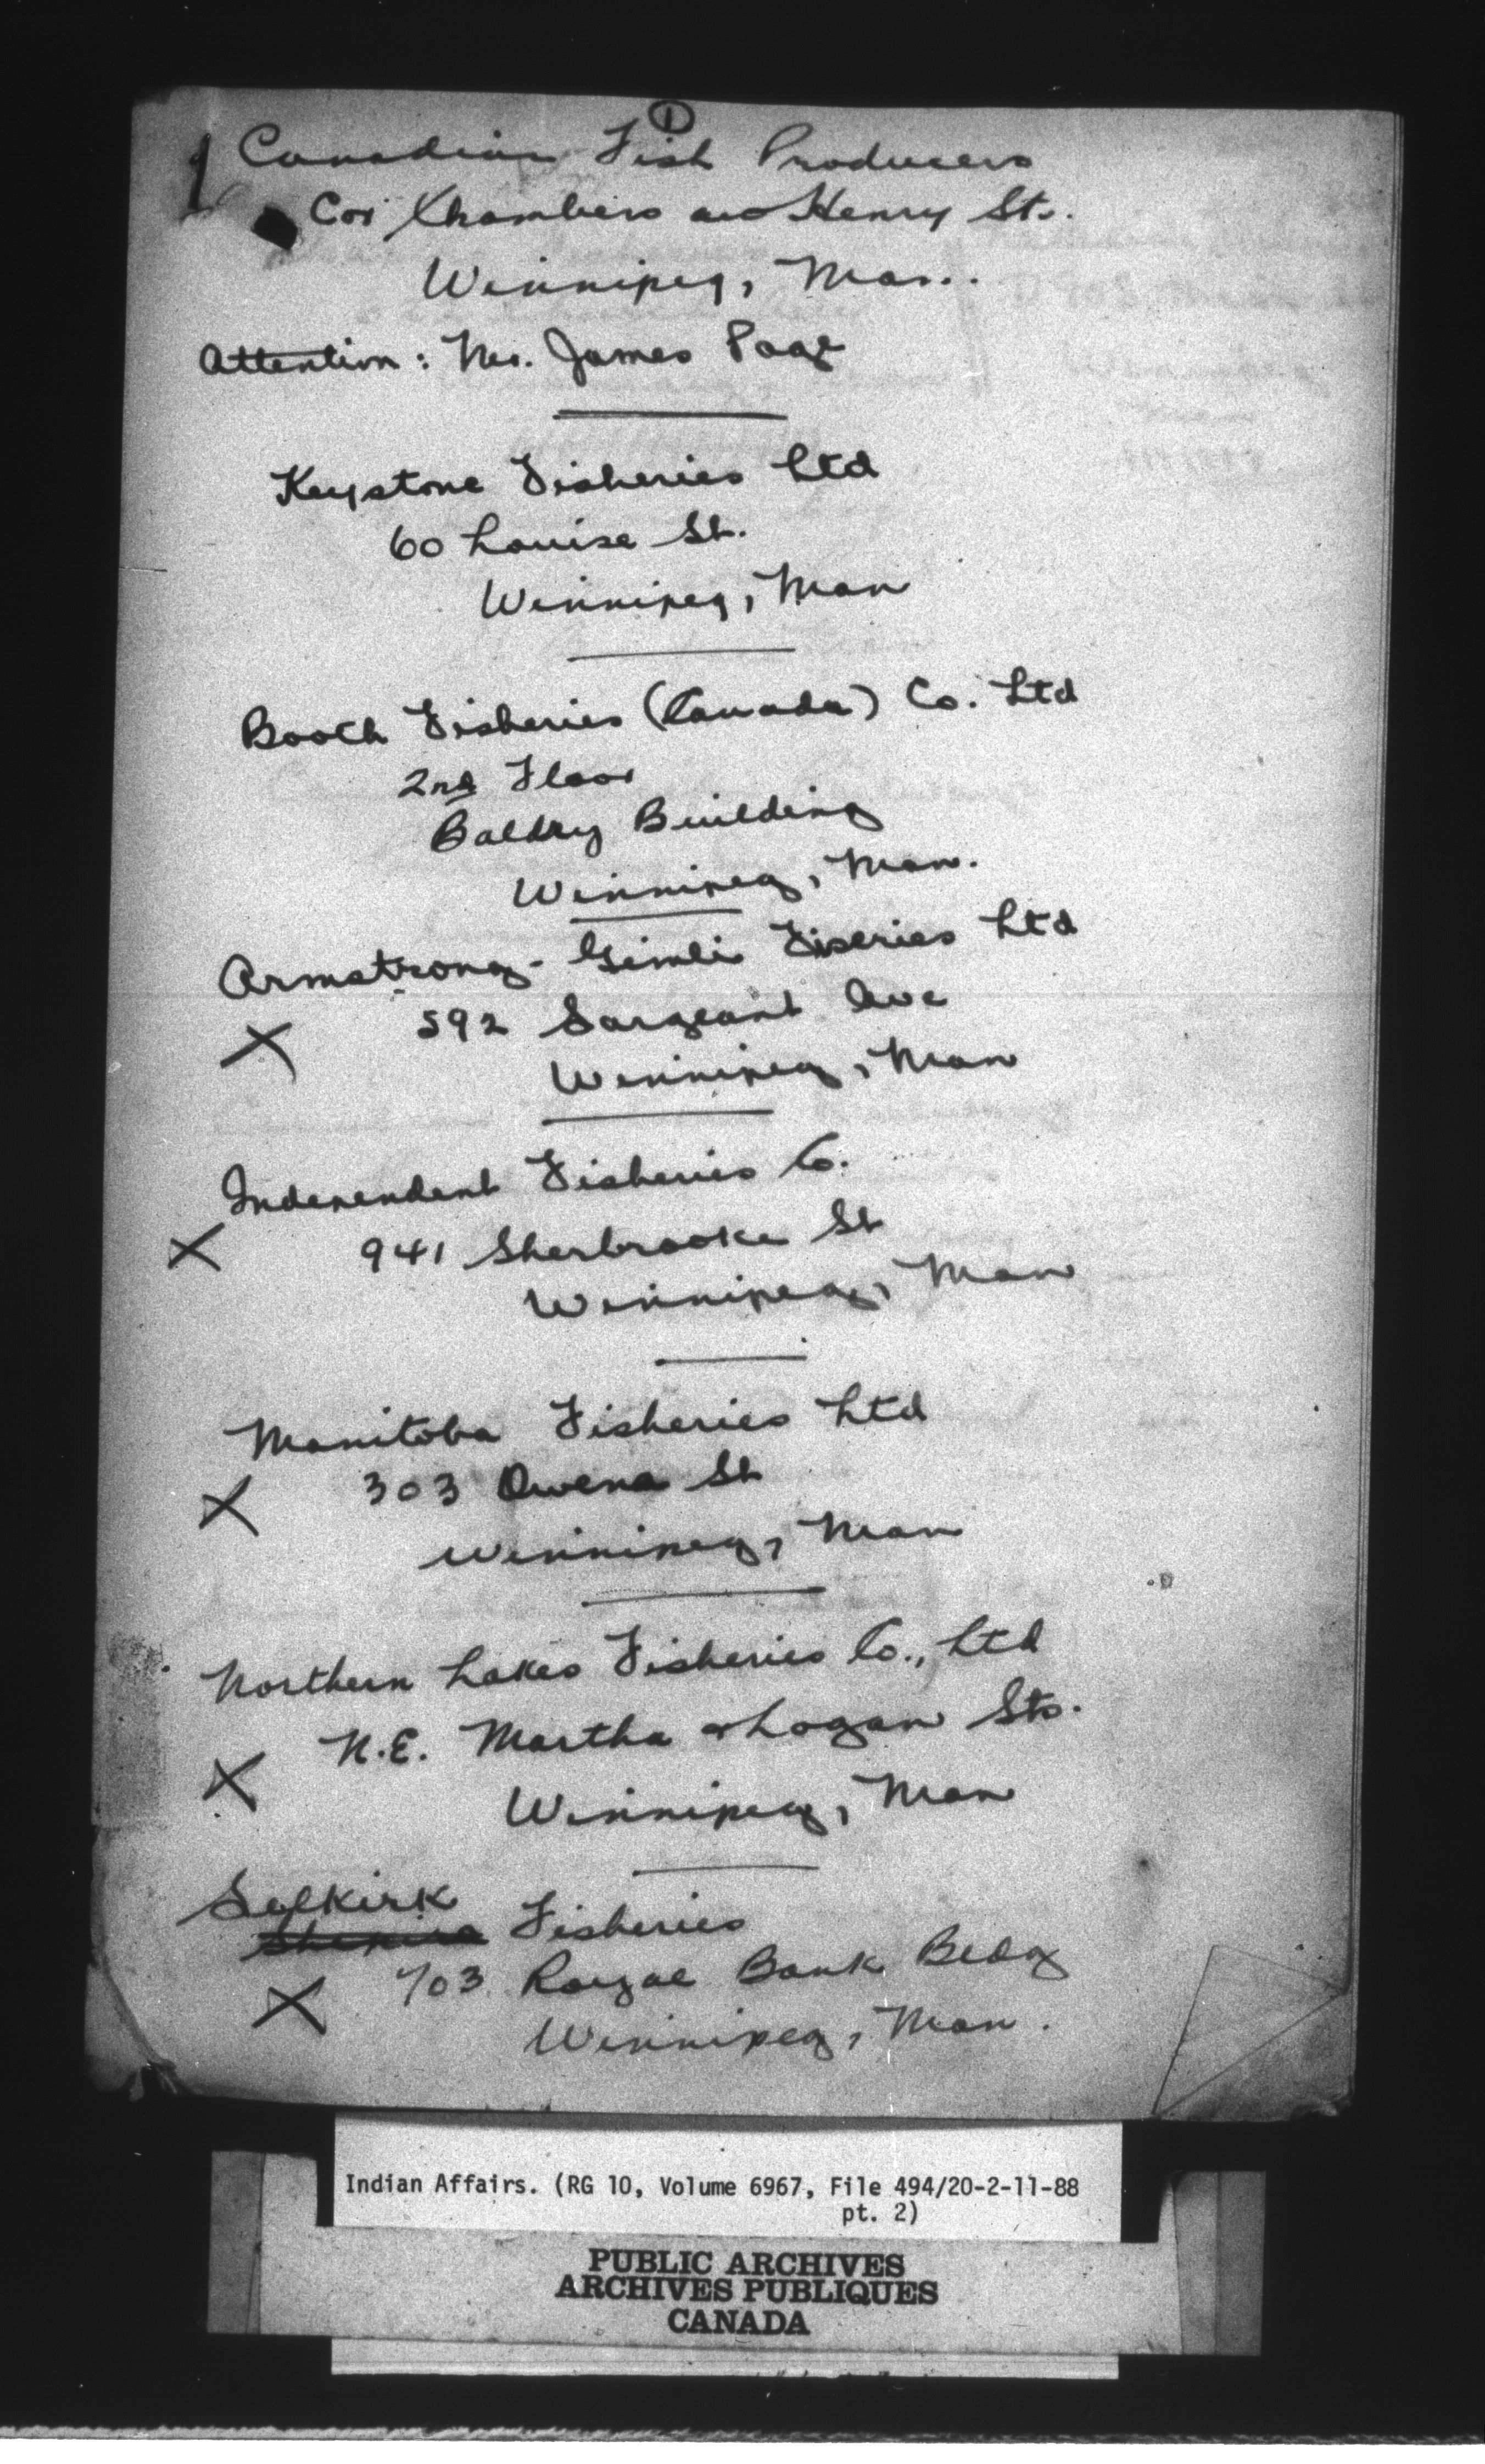 ①
Canadian Fish Producers
Cor Chambers and Henry Sts.
Winnipeg, Man..
Attention: Mr. James Page
Keystone Fisheries Ltd
60 Louise St.
Winnipeg, Man
Booth Fisheries (Canada) Co. Ltd
2nd Floor
Baldry Building
Winnipeg, Man.
Armstrong-Gimli Fiseries Ltd
X 592 Sargeant Ave
Winnipeg, Man
Independent Fisheries Co.
X 941 Sherbrooke St
Winnipeg, Man
Manitoba Fisheries Ltd
X 303 Owena St
Winnipeg, Man
Northern Lakes Fisheries Co., Ltd
N.E. Martha & Logan Sts.
X Winnipeg, Man
Selkirk
Fisheries
X 703 Royal Bank Bldg
Winnipeg, Man.
Indian Affairs. (RG 10, Volume 6967, File 494/20-2-11-88
pt. 2)
PUBLIC ARCHIVES
ARCHIVES PUBLIQUES
CANADA